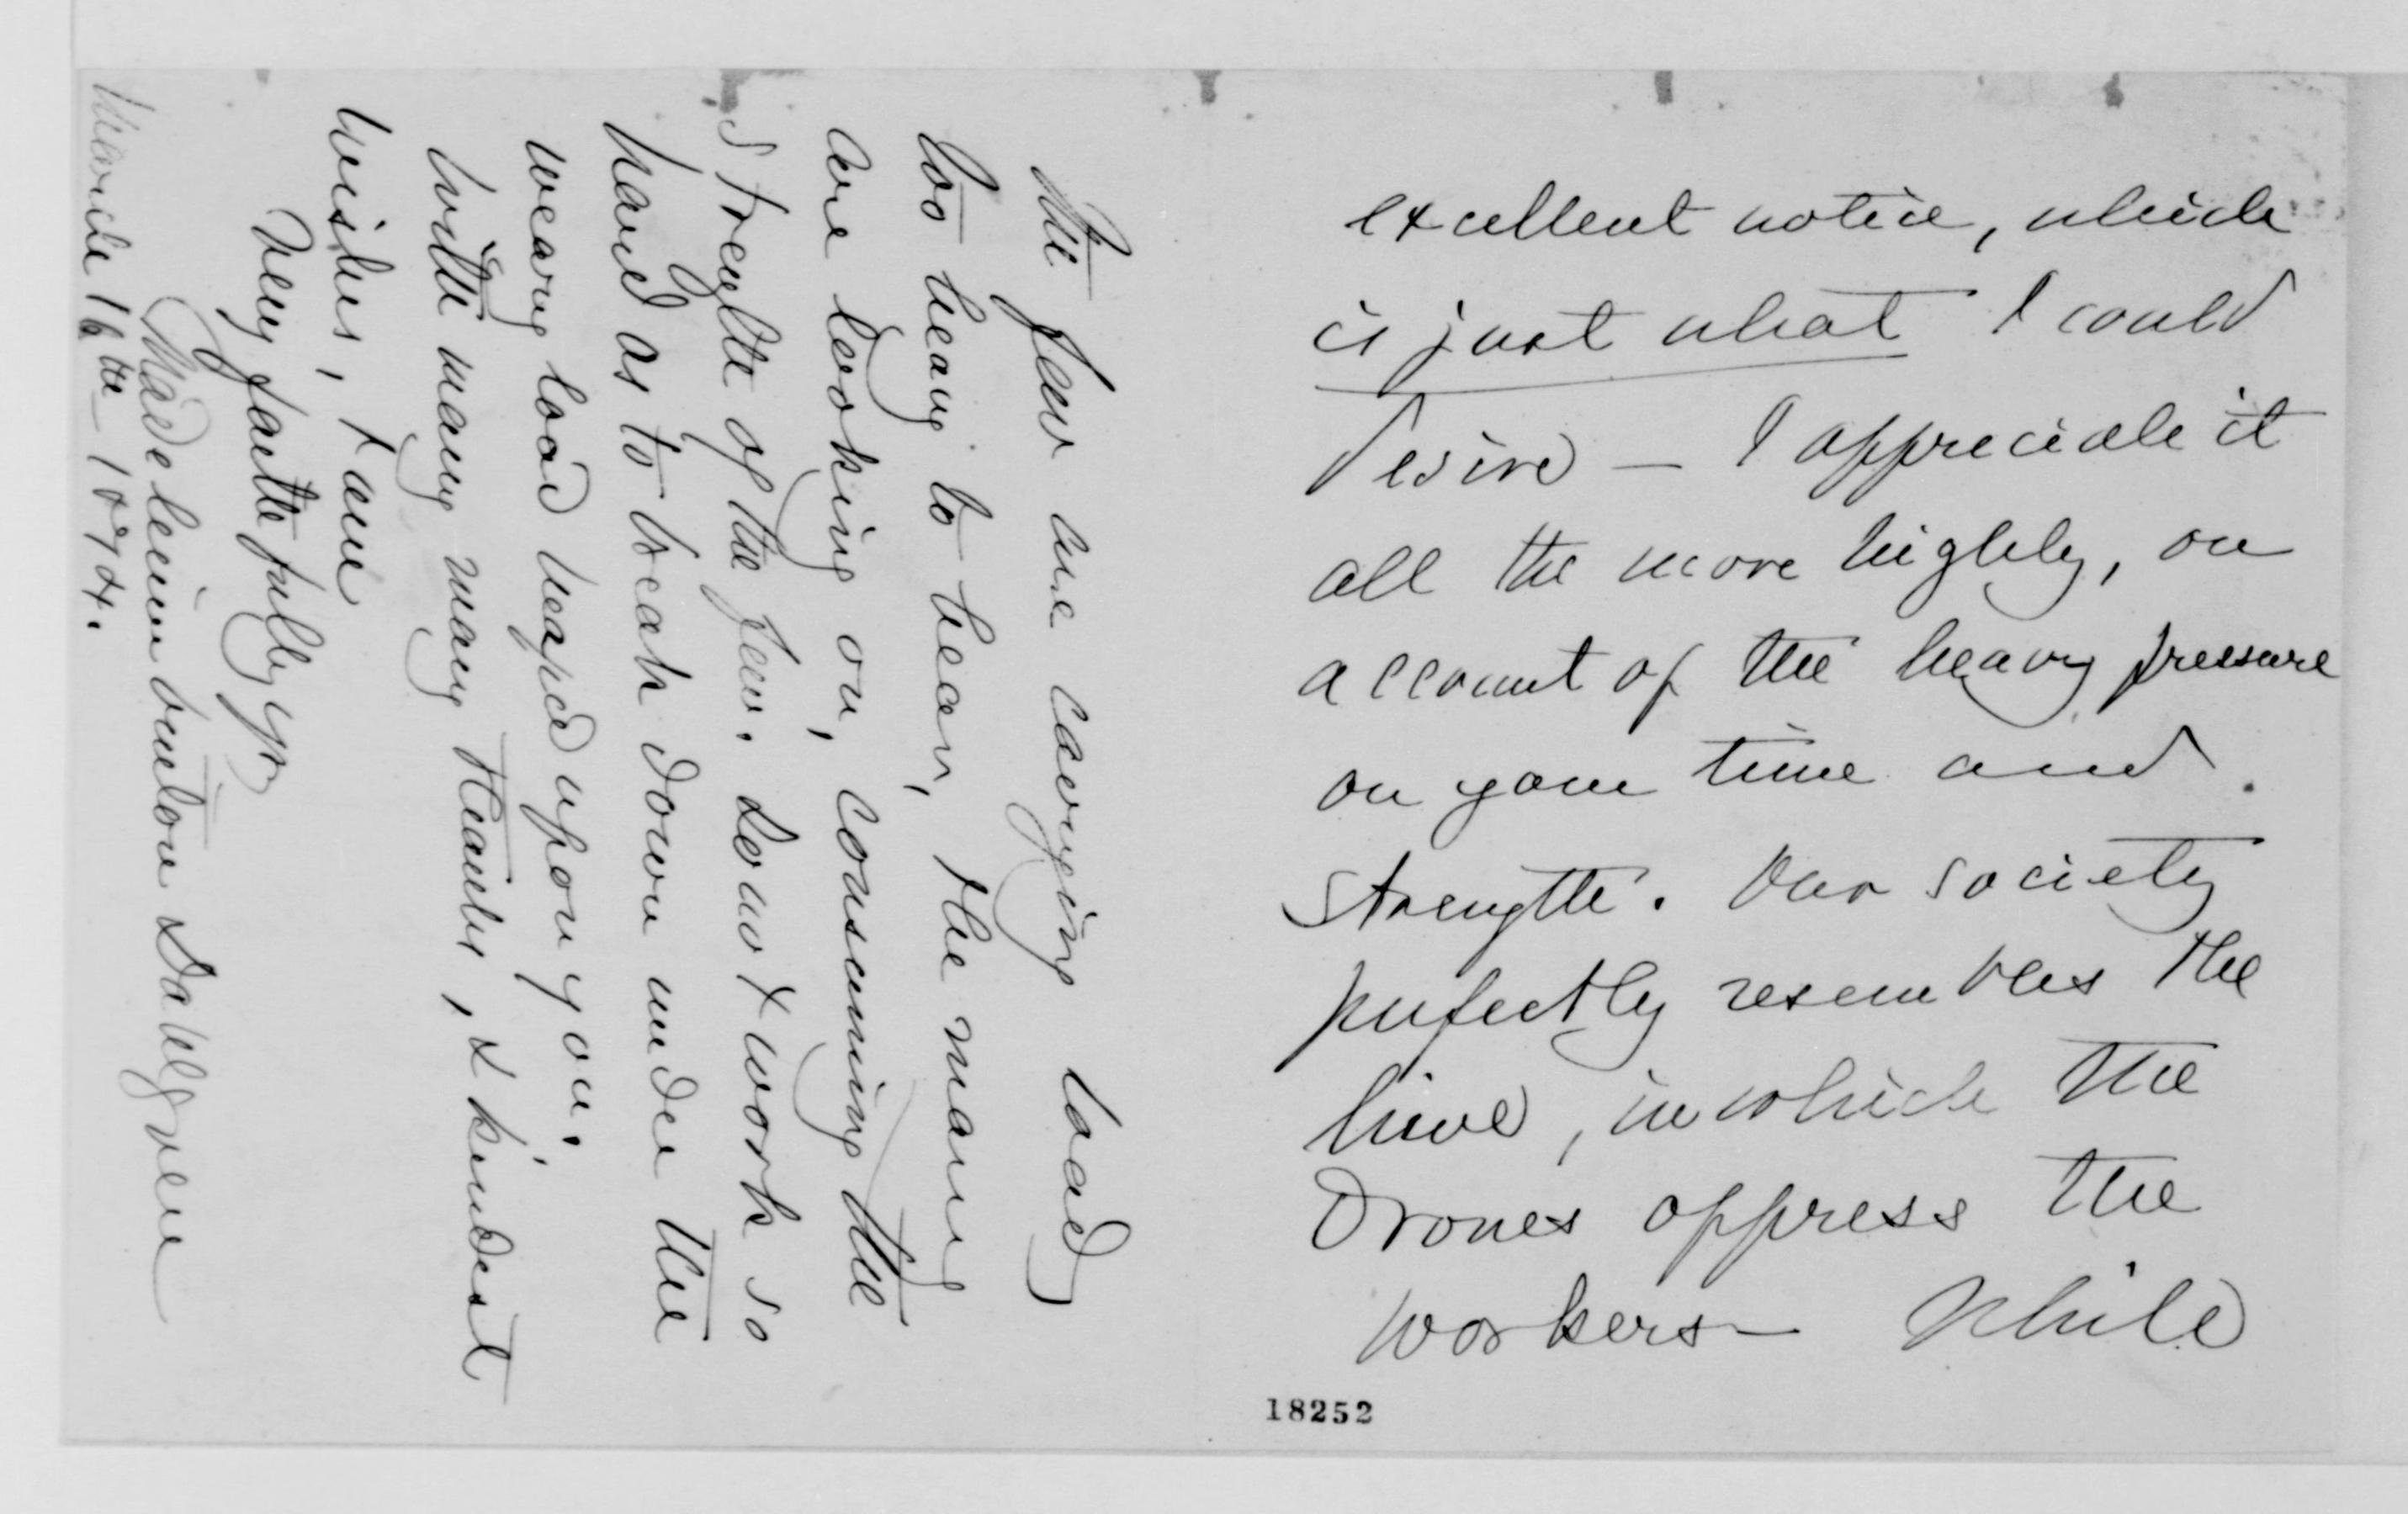 excellent notice, which
is just what I could
desire — I appreciate it
all the more highly, on
account of the heavy pressure
on your time and
strength. Our society
perfectly resembles the
hive, in which the
Drones oppress the
workers — While
18252
the few are carrying load
too heavy to bear, the many
are looking on, consuming the
strength of the few. Do not work so
hard as to break down under the
weary load heaped upon you.
With many many thanks, & kindest
wishes, I am
Very faithfully yrs
Madeleine Vinton Dahlgren
March 16th 1874.